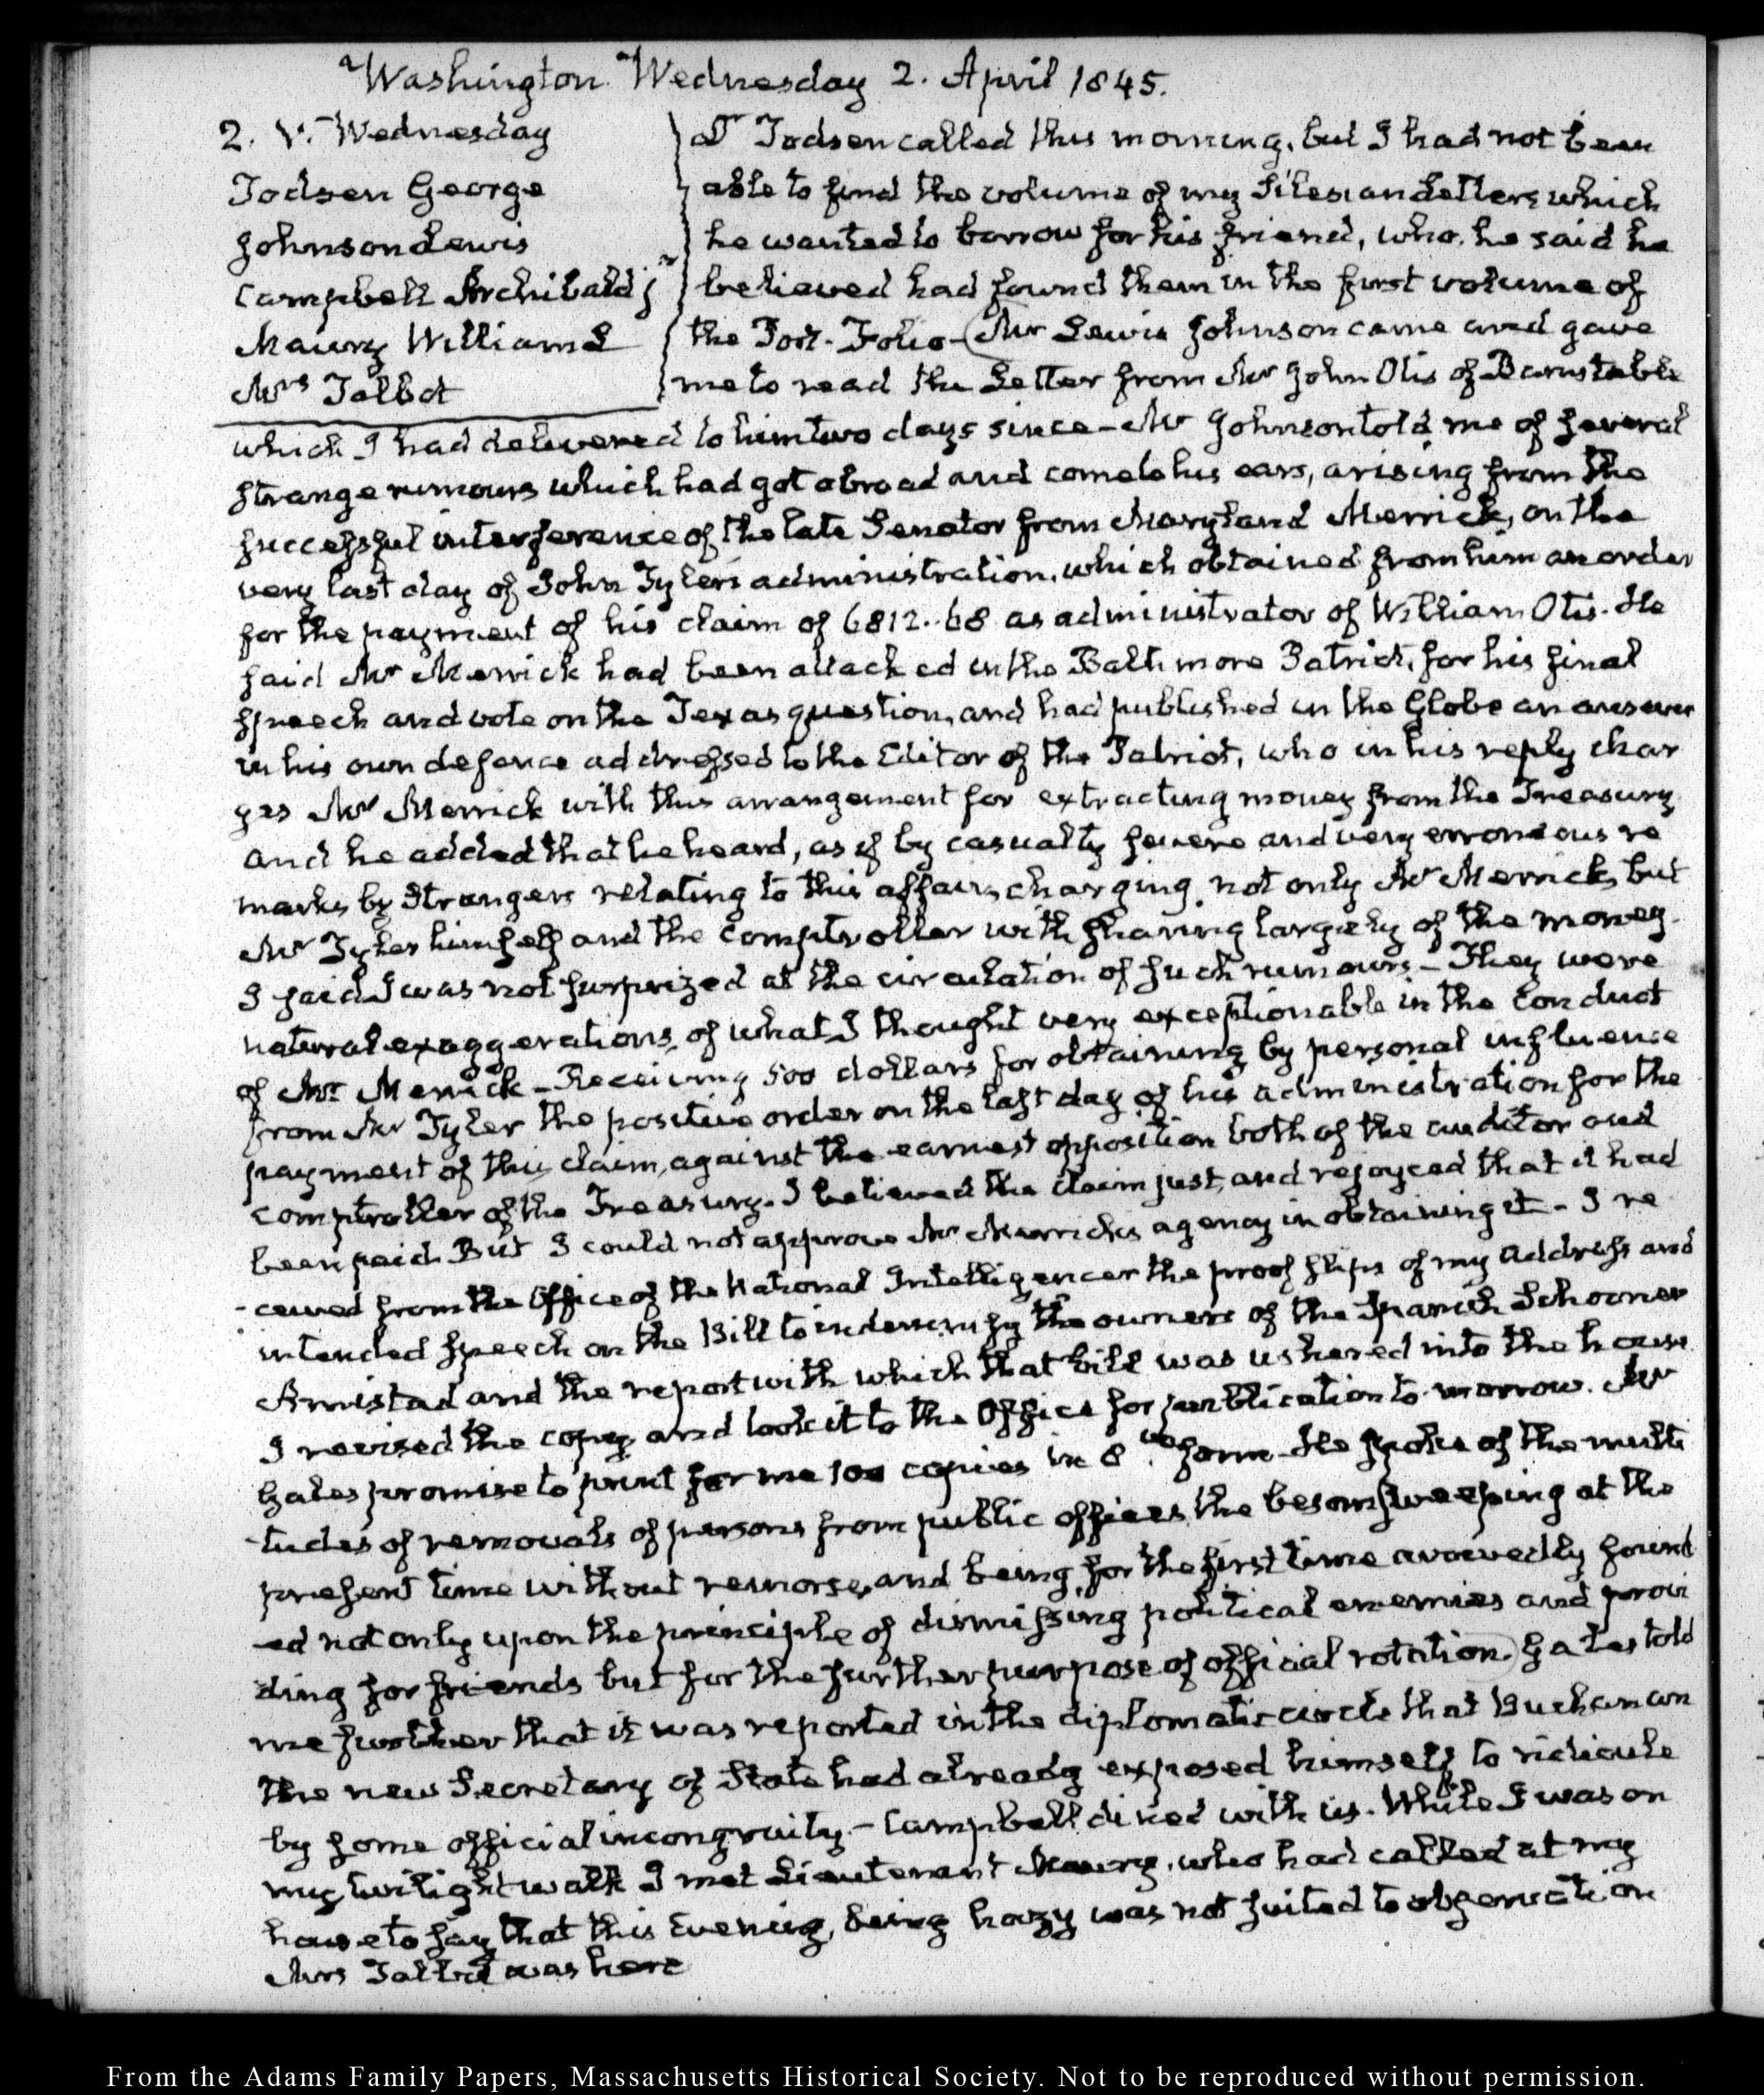 Washington Wednesday 2. April 1845.
2. V. Wednesday
Todsen George
Johnson Lewis
Campbell Archibald jr
Maury William L
Mrs Talbot
Dr Todsen called this morning, but I had not been
able to find the volume of my Silesian Letters which
he wanted to borrow for his friend, who, he said he
believed had found them in the first volume of
the Port-Folio — Mr Lewis Johnson came and gave
me to read the Letter from Mr John Otis of Barnstable
which I had delivered to him two days since — Mr Johnson told me of several
strange rumours which had got abroad and come to his ears, arising from the
successful interference of the late Senator from Maryland Merrick, on the
very last day of John Tyler's administration, which obtained from him an order
for the payment of his claim of 6812..68 as administrator of William Otis. He
said Mr Merrick had been attacked in the Baltimore Patriot, for his final
speech and vote on the Texas question, and had published in the Globe an answer
in his own defence addressed to the Editor of the Patriot, who in his reply char
ges Mr Merrick with this arrangement for extracting money from the Treasury
and he added that he heard, as if by casualty severe and very erroneous re
marks by Strangers relating to this affair, charging not only Mr Merrick, but
Mr Tyler himself and the Comptroller with sharing largely of the money.
I said I was not surprized at the circulation of such rumours — They were
natural exaggerations, of what I thought very exceptionable in the conduct
of Mr Merrick — Receiving 500 dollars for obtaining by personal influence
from Mr Tyler the positive order on the last day of his administration for the
payment of this claim, against the earnest opposition both of the auditor and
comptroller of the Treasury. I believed the claim just, and rejoyced that it had
been paid. But I could not approve Mr Merricks agency in obtaining it — I re
-ceived from the Office of the National Intelligencer the proof slips of my address and
intended speech on the Bill to indemnify the owners of the Spanish Schooner
Amistad and the report with which that bill was ushered into the house.
I revised the copy, and took it to the Office for publication to-morrow. Mr
Gales promise to print for me 100 copies in 8vo. form — He spoke of the multi
-tudes of removals of persons from public offices, the besom sweeping at the
present time without remorse, and being for the first time avowedly found
-ed not only upon the principle of dismissing political enemies and provi
ding for friends but for the further purpose of official rotation. Gales told
me further that it was reported in the diplomatic circle that Buchanan
the new Secretary of State had already exposed himself to ridicule
by some official incongruity — Campbell dined with us. While I was on
my twilight walk I met Lieutenant Maury, who had called at my
house to say that this Evening, being hazy was not suited to observation
Mrs Talbot was here
From the Adams Family Papers, Massachusetts Historical Society. Not to be reproduced without permission.